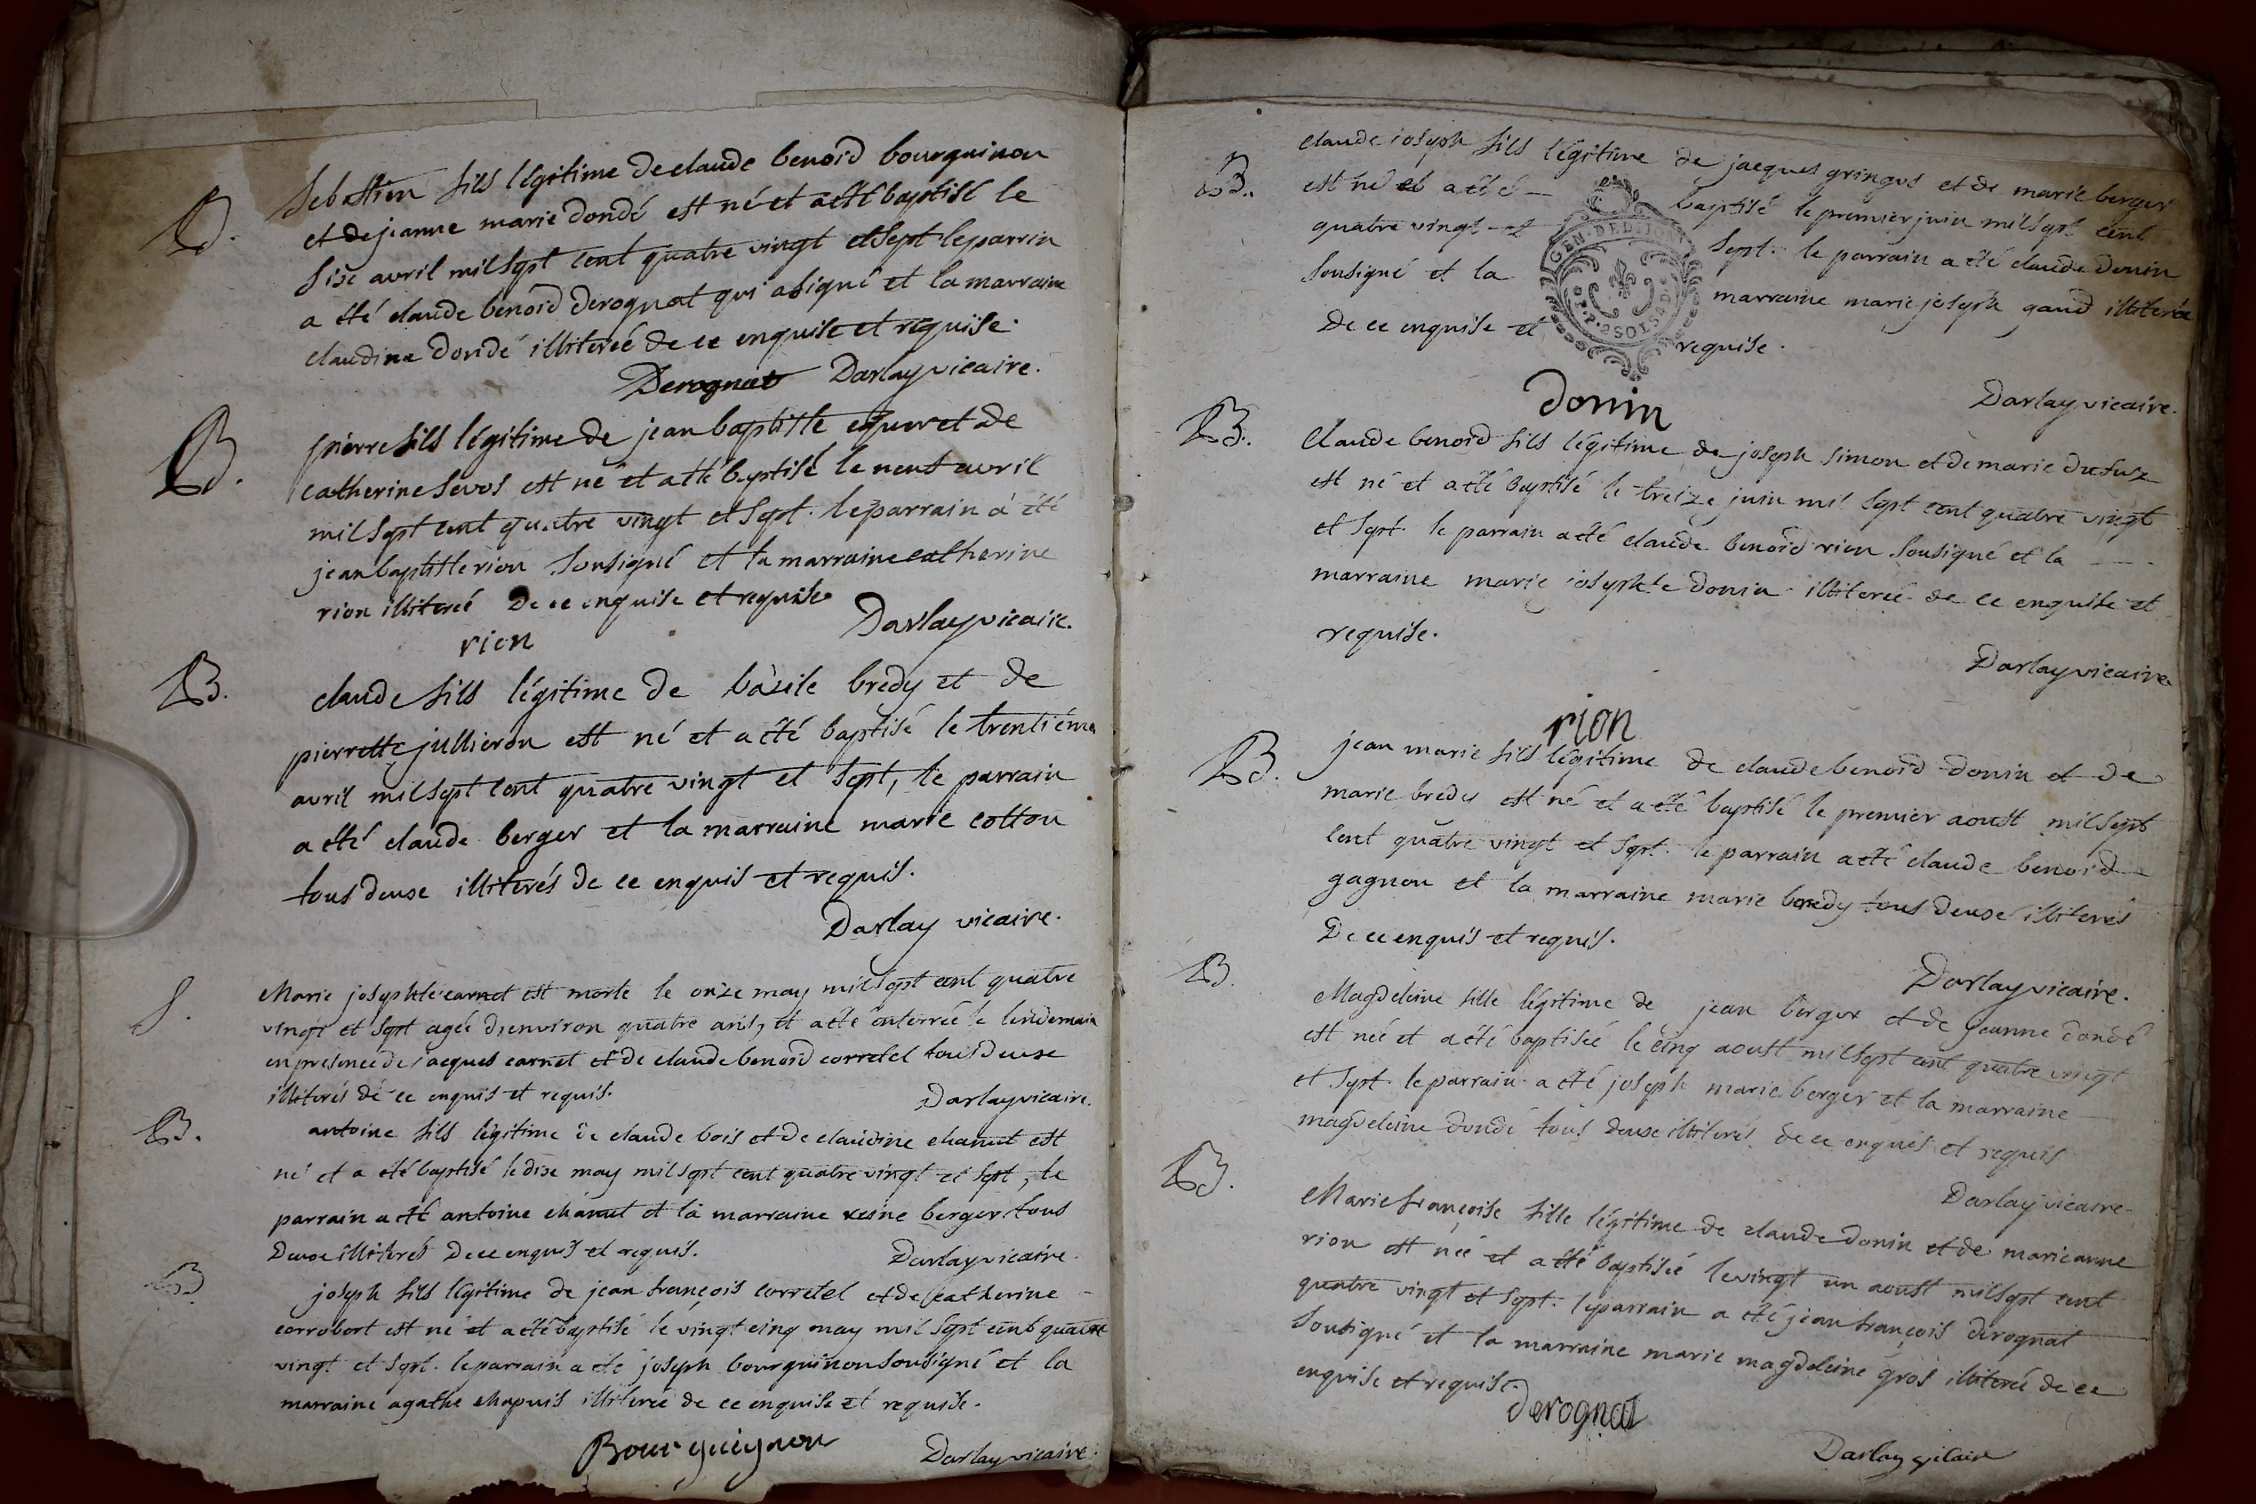 B.
Sebastien fils légitime de claude benoid bourguinon
et de jeanne marie dondé est né et a été baptisé le
sixe avril mil sept cent quatre vingt et sept le parrin
a été claude benoid derognat qui a signé et la marraine
claudine dondé illiterée de ce enquise et requise.
Derognat Darlay vicaire.
B.
pierre fils légitime de jean baptiste equer et de
catherine sevos est né et a été baptisé le neuf avril
mil sept cent quatre vingt et sept. le parrain à été
jean baptiste rion sousigné et la marraine catherine
rion illiterée de ce enquise et requise
rion Darlay vicaire.
B.
claude fils légitime de basile bredy et de
pierrette jullieron est né et a été baptisé le trentiéme
avril mil sept cent quatre vingt et sept, le parrain
a été claude berger et la marraine marie cotton
tous deuxe illiterés de ce enquis et requis.
Darlay vicaire.
S.
Marie josephte carnet est morte le onze may mil sept cent quatre
vingt et sept agée d'environ quatre ans, et a été enterrée le lendemain
en presence de jacques carnet et de claude benoid corretel tous deuxe
illiterés de ce enquis et requis. Darlay vicaire.
B.
antoine fils légitime de claude bois et de claudine chanut est
né et a été baptisé le dixe may mil sept cent quatre vingt et sept, le
parrain a été antoine chanut et la marraine reine berger tous
deuxe illiterés de ce enquis et requis. Darlay vicaire.
B
joseph fils légitime de jean françois corretel et de catherine
corrobert est né et a été baptisé le vingt cinq may mil sept cent quatre
vingt et sept. le parrain a été joseph bourguinon sousigné et la
marraine agathe chapuis illiterée de ce enquise et requise.
Bourguignon Darlay vicaire.
B.
claude joseph fils légitime de jacques gringos et de marie berger
est né et a été baptisé le premier juin mil sept cent
quatre vingt et sept. le parrain a été claude donin
sousigné et la marraine marie joseph gaud illiterée
de ce enquise et requise.
GEN. DE DIJON
donin Darlay vicaire.
B.
Claude benoid fils légitime de joseph simon et de marie dufuz
est né et a été baptisé le treize juin mil sept cent quatre vingt
et sept. le parrain a été claude benoid rion sousigné et la
marraine marie josephte donin illiterée de ce enquise et
requise.
Darlay vicaire
rion
B.
jean marie fils légitime de claude benoid donin et de
marie bredy est né et a été baptisé le premier aoust mil sept
cent quatre vingt et sept. le parrain a été claude benoid
gagnon et la marraine marie bredy tous deuxe illiterés
de ce enquis et requis.
Darlay vicaire.
B.
Magdeleine fille légitime de jean berger et de jeanne dondé
est née et a été baptisée le cinq aoust mil sept cent quatre vingt
et sept. le parrain a été joseph marie berger et la marraine
magdeleine dondé tous deuxe illiterés de ce enquis et requis
Darlay vicaire
B.
Marie françoise fille légitime de claude donin et de marieanne
rion est née et a été baptisée le vingt un aoust mil sept cent
quatre vingt et sept. le parrain a été jean françois derognat
sousigné et la marraine marie magdeleine gros illiterée de ce
enquise et requise.
derognat
Darlay vicaire